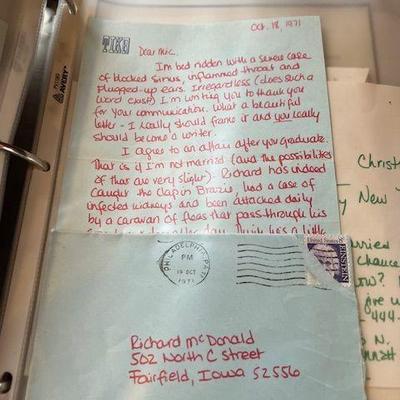 Oct. 18, 1971
TIKA
Dear Mic.
I'm bed ridden with a severe case
of blocked sinus, inflammed throat and
plugged-up ears. Irregardless (does such a
word exist) I'm writing you to thank you
for your communication. What a beautiful
letter - I really should frame it and you really
should become a writer.
I agree to an affair after you graduate.
That is if I'm not married (and the possibilities
of that are very slight). Richard has indeed
caught the clap in Brazil, had a case of
infected kidneys and been attacked daily
by a caravan of fleas that pass through his
PHILADELPHIA, PA
PM
19 OCT
1971
United States
EINSTEIN
Richard McDonald
502 North C Street
Fairfield, Iowa 52556
AVERY
Christ
New
Chance
444.
N.